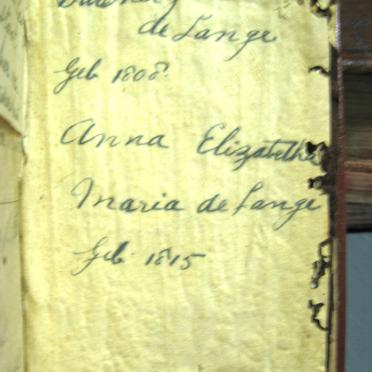 de Lange
Geb 1808
Anna Elizabetha
Maria de Lange
Geb 1815